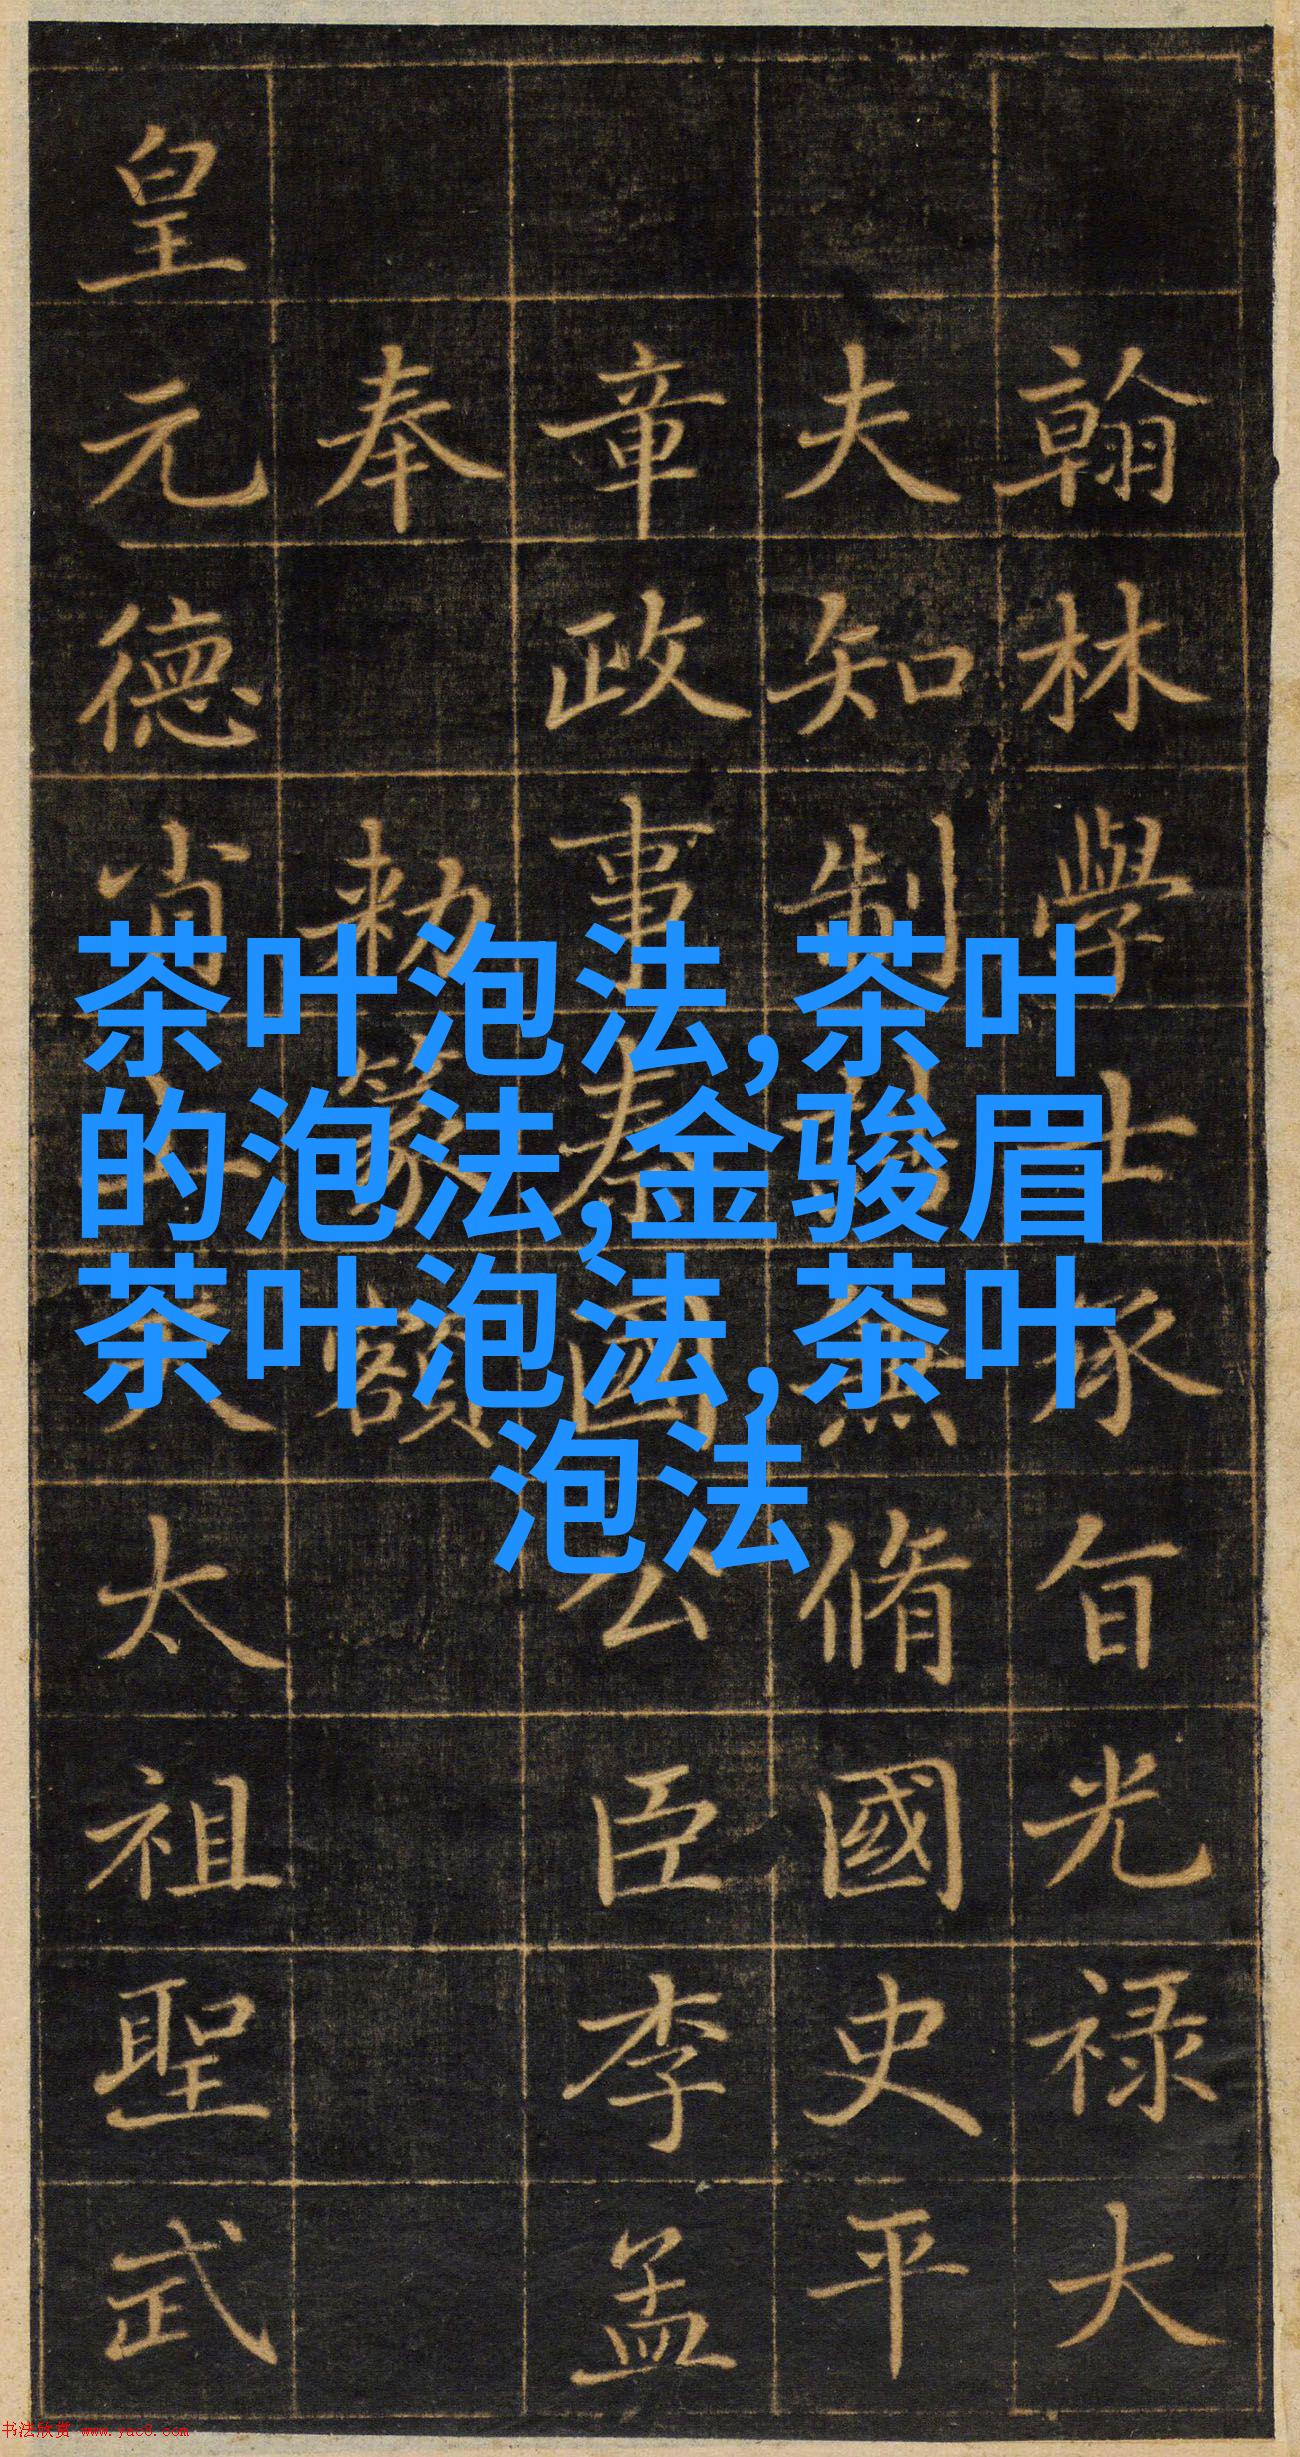 翰林學士承旨光禄大
夫知制誥兼脩國史平
章政事秦國公臣李孟
奉勅篆額
皇元德肖太祖聖武
茶叶泡法,茶叶
的泡法,金骏眉
茶叶泡法,茶叶
泡法
书法欣赏 www.yac8.com